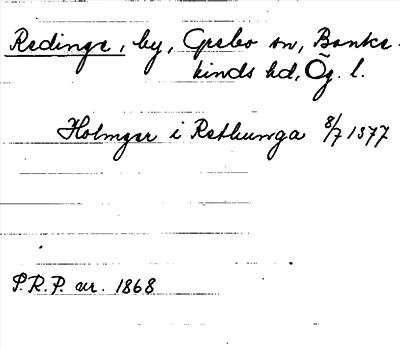 Redinge, by, Grebo sn, Banke-
kinds hd, Ög. l.
Holmger i Rethunga 8/7 1377
P.R.P. nr. 1868